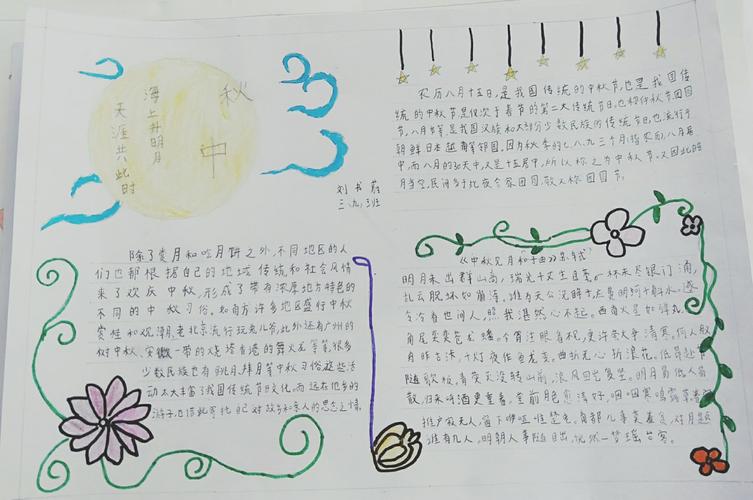 中秋
海上升明月
天涯共此时
刘书
三、九、3班
农历八月十五日,是我国传统的中秋节,也是我国传
统的中秋节,是仅次于春节的第二大传统节日,也称仲秋节团圆
节,八月节等,是我国汉族和大部分少数民族的传统节日,也流行于
朝鲜日本越南等邻国,因为秋季的七、八、九三个月(指农历)八月居
中,而八月的30天中,又是十五居中,所以称之为中秋节,又因此时
月当空,民间多于此夜合家团圆,故又称团圆节。
除了赏月和吃月饼之外,不同地区的人
们也都根据自己的地域传统和社会风情
来了欢庆中秋,形成了带有浓厚地方特色的
不同的中秋习俗,如南方许多地区盛行中秋
赏桂和观潮月,老北京流行玩兔儿爷,此外还有广州的
树中秋、安徽一带的烧塔香港的舞火龙等等,很多
少数民族也有跳月、拜月等中秋习俗这些活
动大大丰富了我国传统节日文化,而远在他乡的
游子,也借此寄托自己对故乡和亲人的思念之情,
《中秋见月和子由》苏轼
明月未出群山高,瑞光千丈生白毫。一杯未尽银
乱云脱坏如崩涛,谁为天公洗眸子,应费明河千斛水,遂
令冷看世间人,照我湛然心不起。西南火星如弹丸,
角尾奕奕苍龙蟠。今宵注眼看不见,更许萤火争清寒。何人舣
散,归来呼酒更重看。堂前月色愈清好,咽咽寒螀鸣露草。卷帘
推户寂无人,窗下咿哑唯楚老。南都
谁有几人。明朝人事随日出,恍然一梦瑶台客。